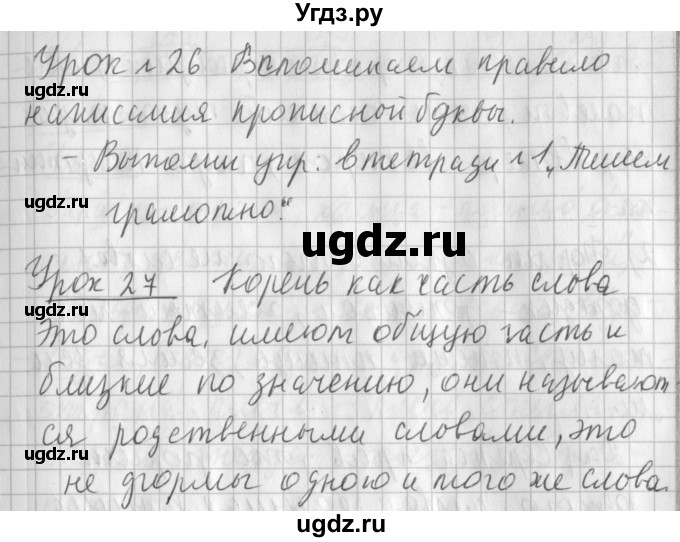 Угдз.ру
Урок № 26 Вспоминаем правило
написания прописной буквы.
– Выполни упр: в тетради №1 „Пишем
грамотно“
Урок 27 Корень как часть слова
Это слова, имеют общую часть и
близкие по значению, они называют-
ся родственными словами, это
не формы одного и того же слова.
ugdz.ru
ugdz.ru
ugdz.ru
ugdz.ru
ugdz.ru
ugdz.ru
ugdz.ru
ugdz.ru
ugdz.ru
ugdz.ru